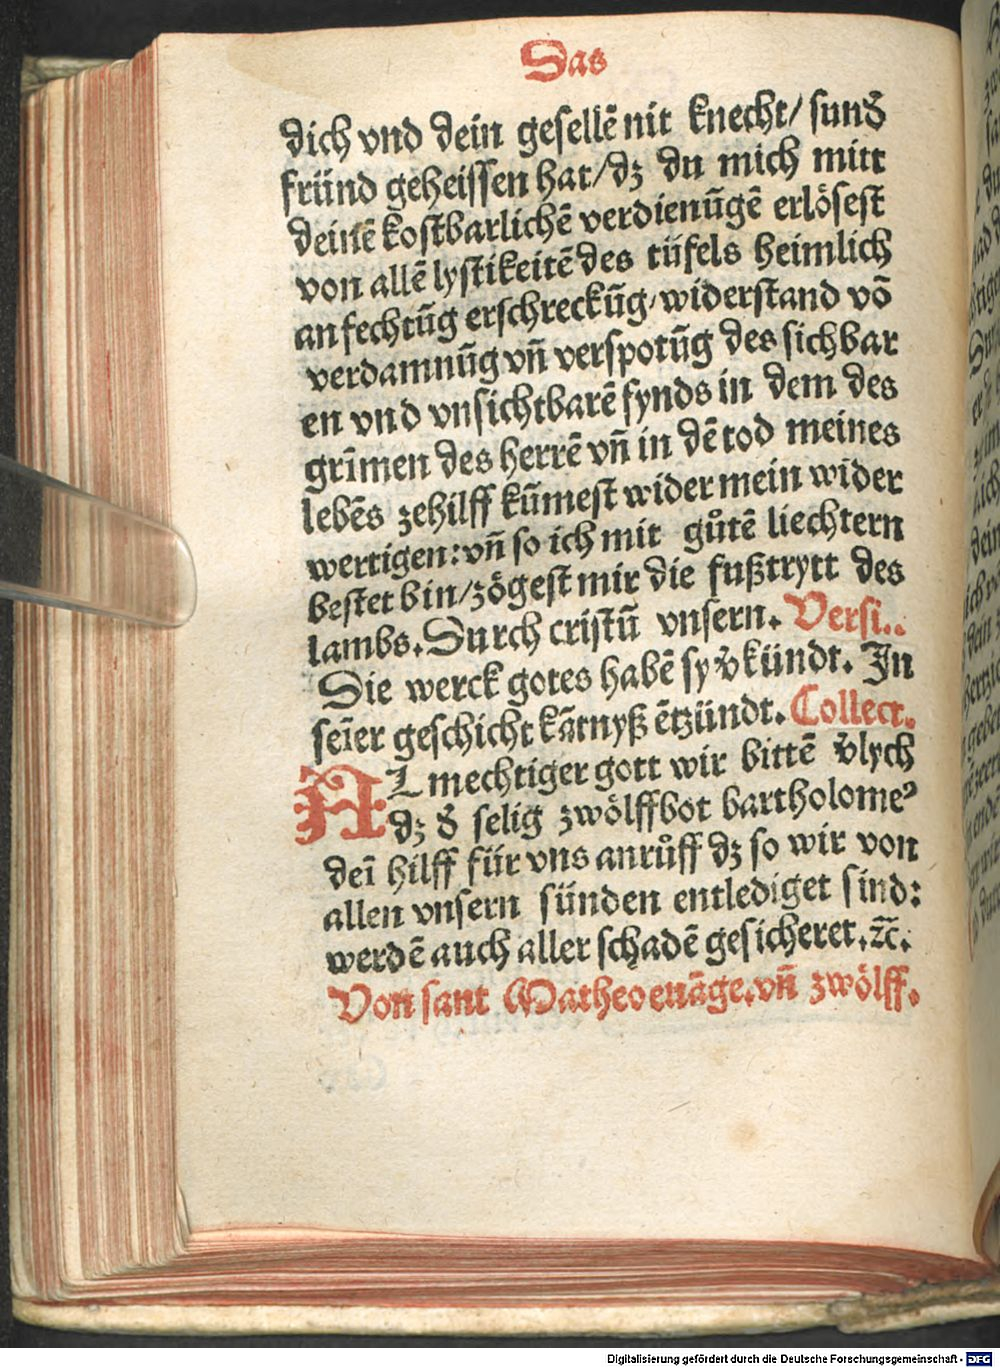 Das
dich vnd dein gesellē nit knecht/ sunđ
fründ geheissen hat/dz du mich mitt
deinē kostbarlichē verdienūgē erlösest
von allē lystikeitē des tüfels heimlich
anfechtūg erschreckūg/widerstand vō
verdamnūg vn̄ verspotūg des sichbar
en vnd vnsichtbarē fynds in dem des
grīmen des herrē vn̄ in dē tod meines
lebēs zehilff kūmest wider mein wider
wertigen: vn̄ so ich mit gůtē liechtern
bestet bin/zögest mir die fußtrytt des
lambs. Durch cristū vnsern. Versi..
Die werck gotes habē sy v̄kündt. In
seīer geschicht kātnyß ētzündt. Collect.
AL mechtiger gott wir bittē v̄lych
dz đ selig zwölffbot bartholomeꝰ
deī hilff für vns anrůff dz so wir von
allen vnsern sünden entlediget sind:
werdē auch aller schadē gesicheret. ⁊c̄.
Von sant Matheo euāge. vn̄ zwölff.
Digitalisierung gefördert durch die Deutsche Forschungsgemeinschaft - DFG